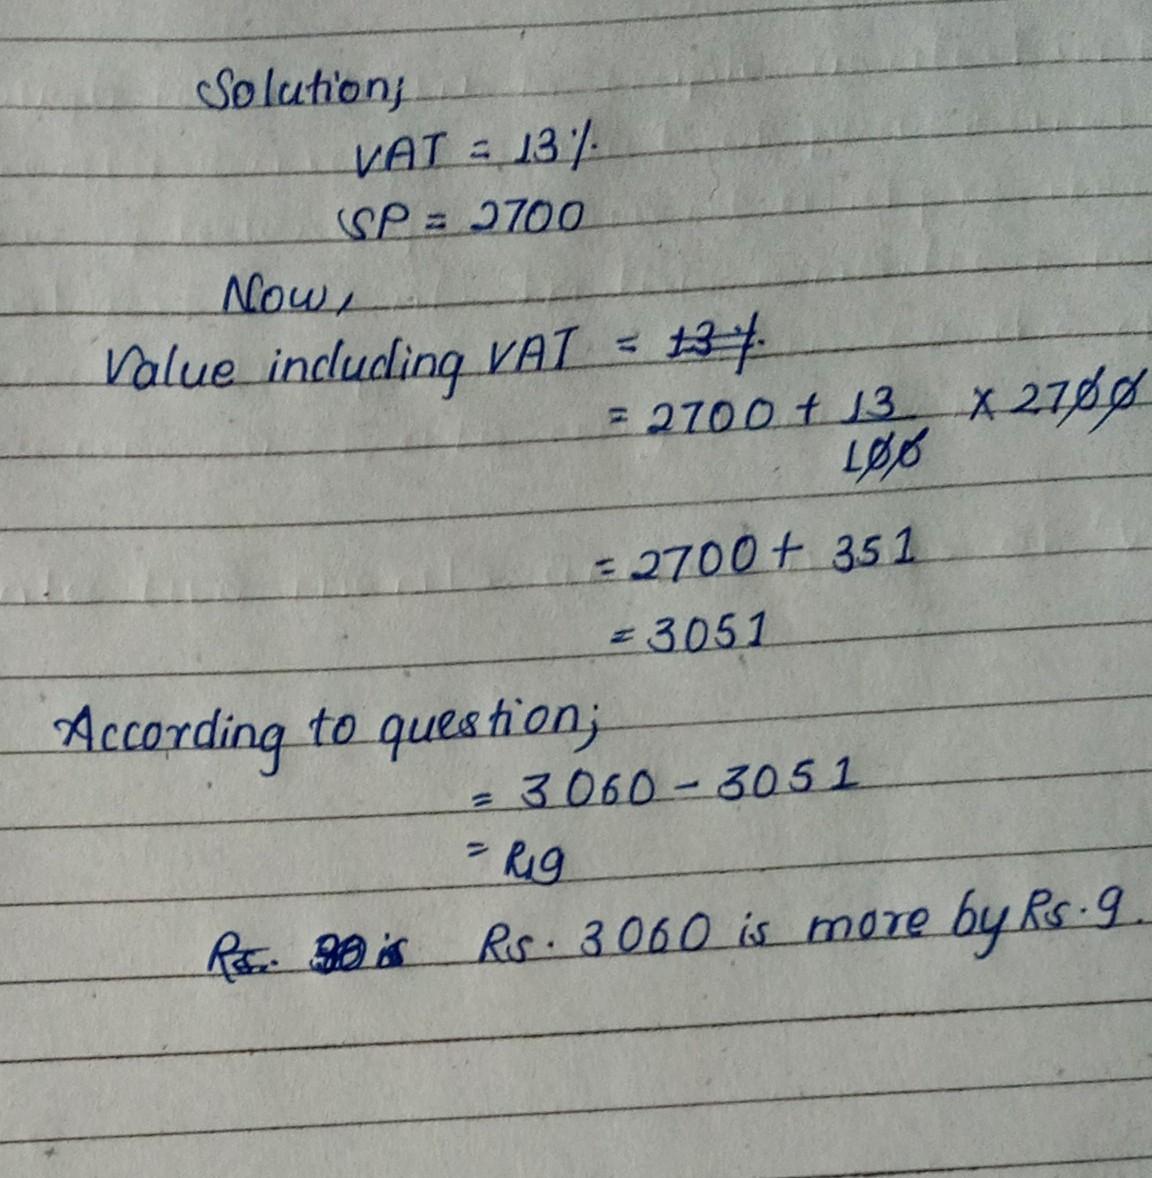 Solution;
VAT = 13%
SP = 2700
Now,
Value including VAT = 13%
= 2700 + 13/100 × 2700
= 2700 + 351
= 3051
According to question;
= 3060 - 3051
= Rs 9
Rs. 30 is Rs. 3060 is more by Rs. 9.